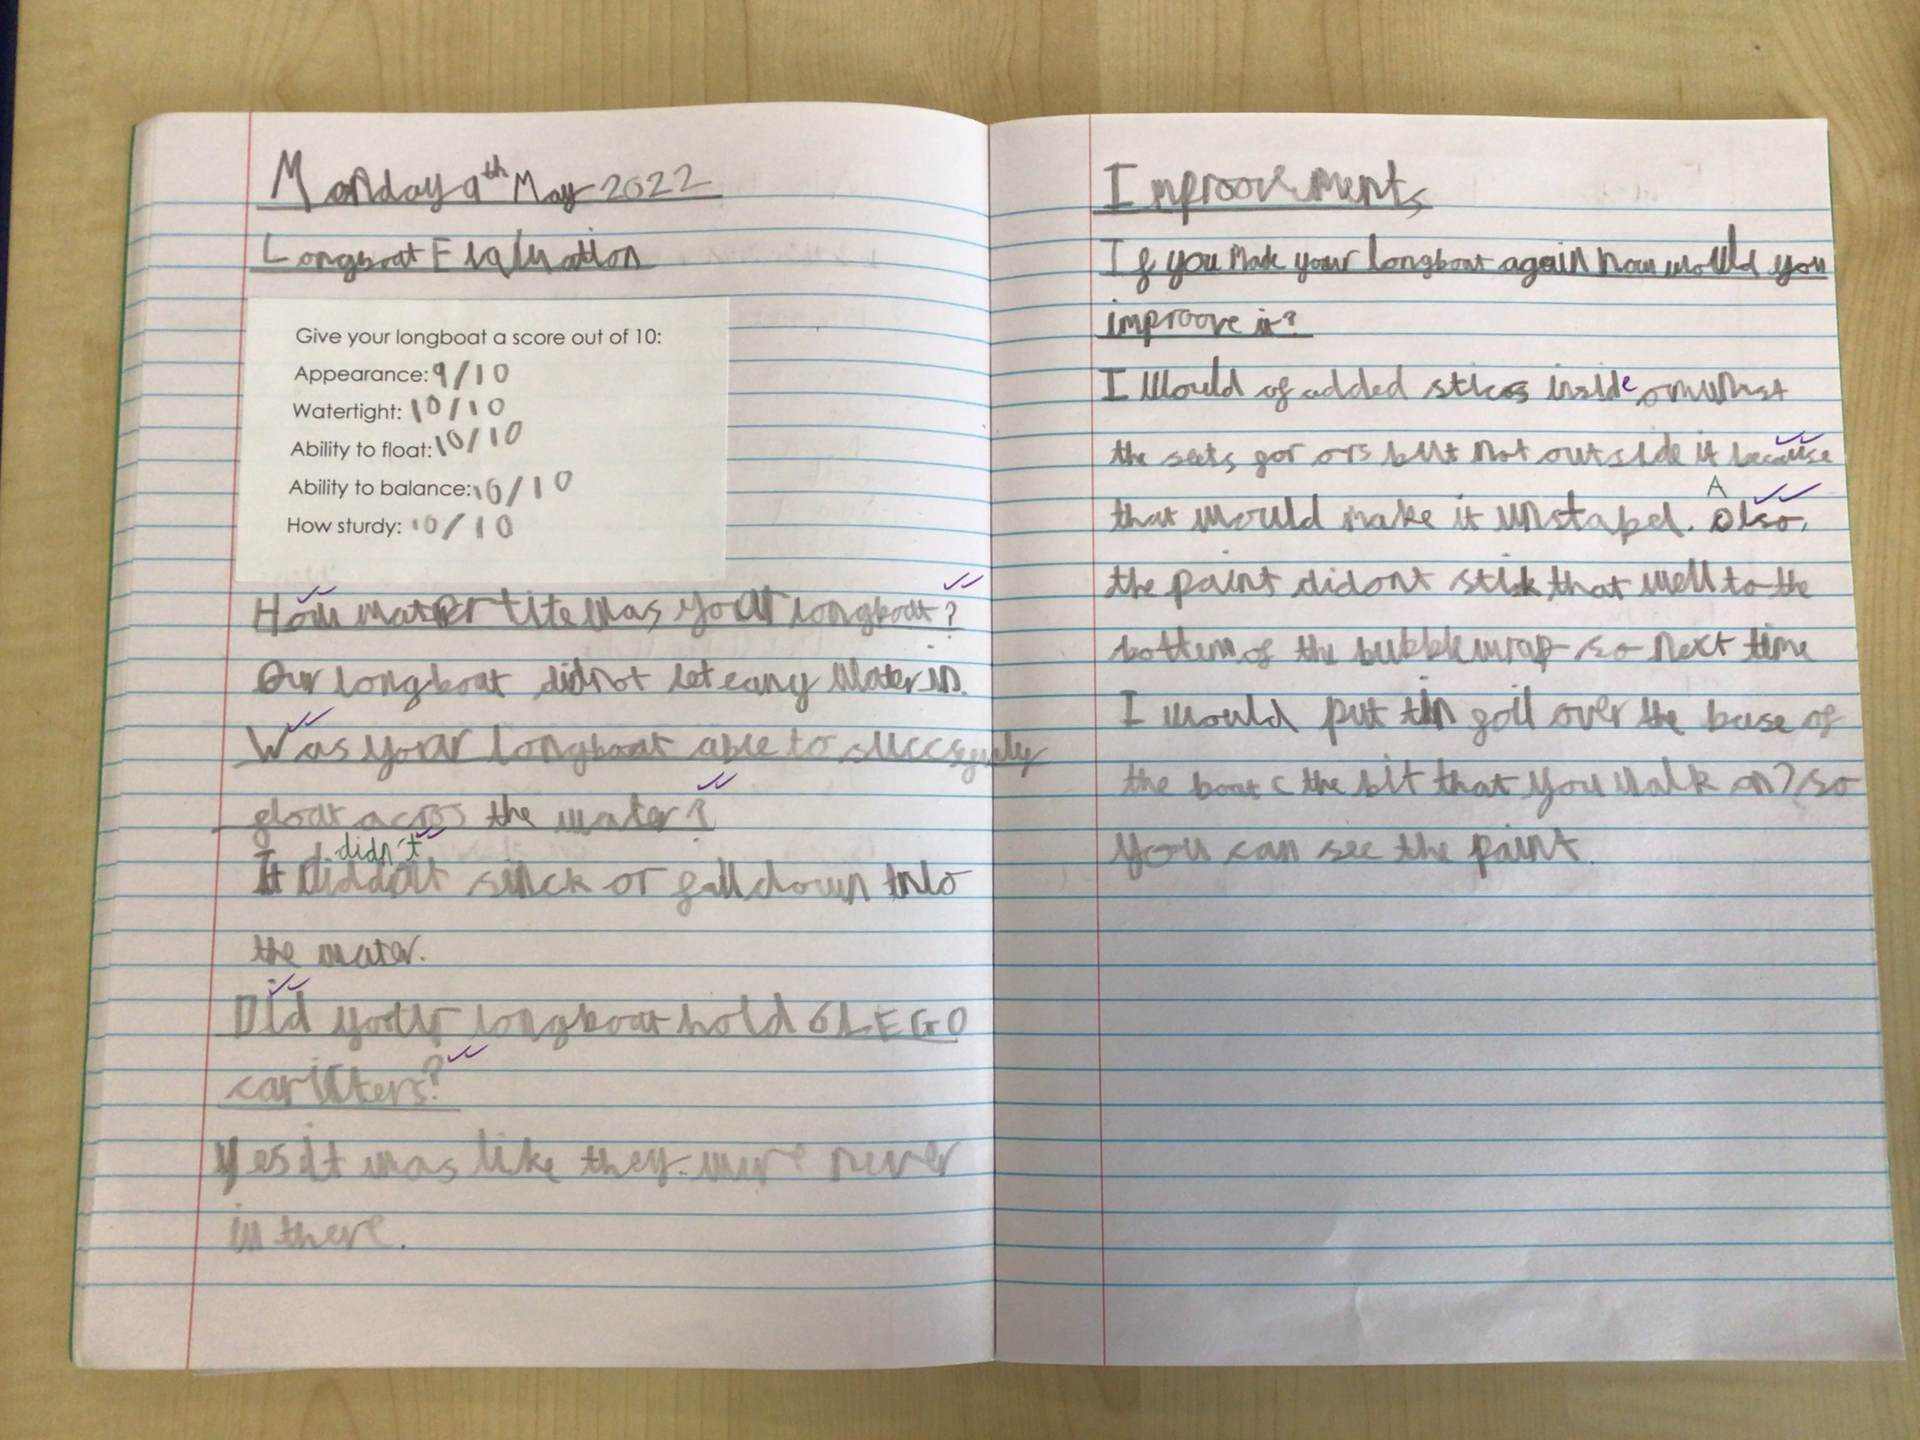 Monday 9th May 2022
Longboat Evaluation
Give your longboat a score out of 10:
Appearance: 9/10
Watertight: 10/10
Ability to float: 10/10
Ability to balance: 10/10
How sturdy: 10/10
How water tite was your longboat?
Our longboat did not let eany water in.
Was your longboat able to succsefuly
float across the water?
didn't
It sinck or fall down into
the water.
Did your longboat hold 6 LEGO
caricters?
Yes it was like they were never
in there.
Improovements
If you made your longboat again how would you
improove it?
I would of added stics inside
the seets for ors but not outside it because
A
that would make it unstabel. also,
the paint didont stick that well to the
bottem of the bubble wrap so next time
I would put tin foil over the base of
the boat (the bit that you walk on) so
you can see the paint.